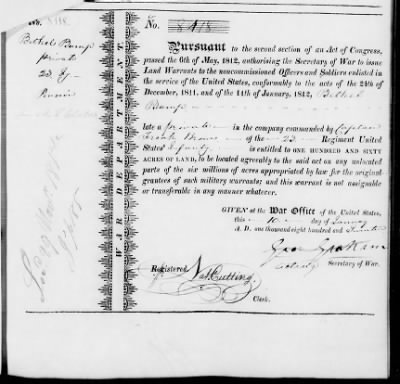 No. 8418
Bethel Bump
private
23. Inf
No. 8418
Pursuant to the second section of an Act of Congress,
passed the 6th of May, 1812, authorising the Secretary of War to issue
Land Warrants to the noncommissioned Officers and Soldiers enlisted
in the service of the United States, conformably to the acts of the 24th of
December, 1811, and of the 11th of January, 1812, Bethel
Bump
late a private in the company commanded by Captain
Frank of the 23 Regiment United
States Infantry is entitled to ONE HUNDRED AND SIXTY
ACRES OF LAND, to be located agreeably to the said act on any unlocated
parts of the six millions of acres appropriated by law for the original
grantees of such military warrants; and this warrant is not assignable
or transferable in any manner whatever.
GIVEN at the War Office of the United States,
this 10 day of January
A. D. one thousand eight hundred and
Geo Graham
acting Secretary of War.
Registered
Nat Cutting
Clerk.
WAR DEPARTMENT